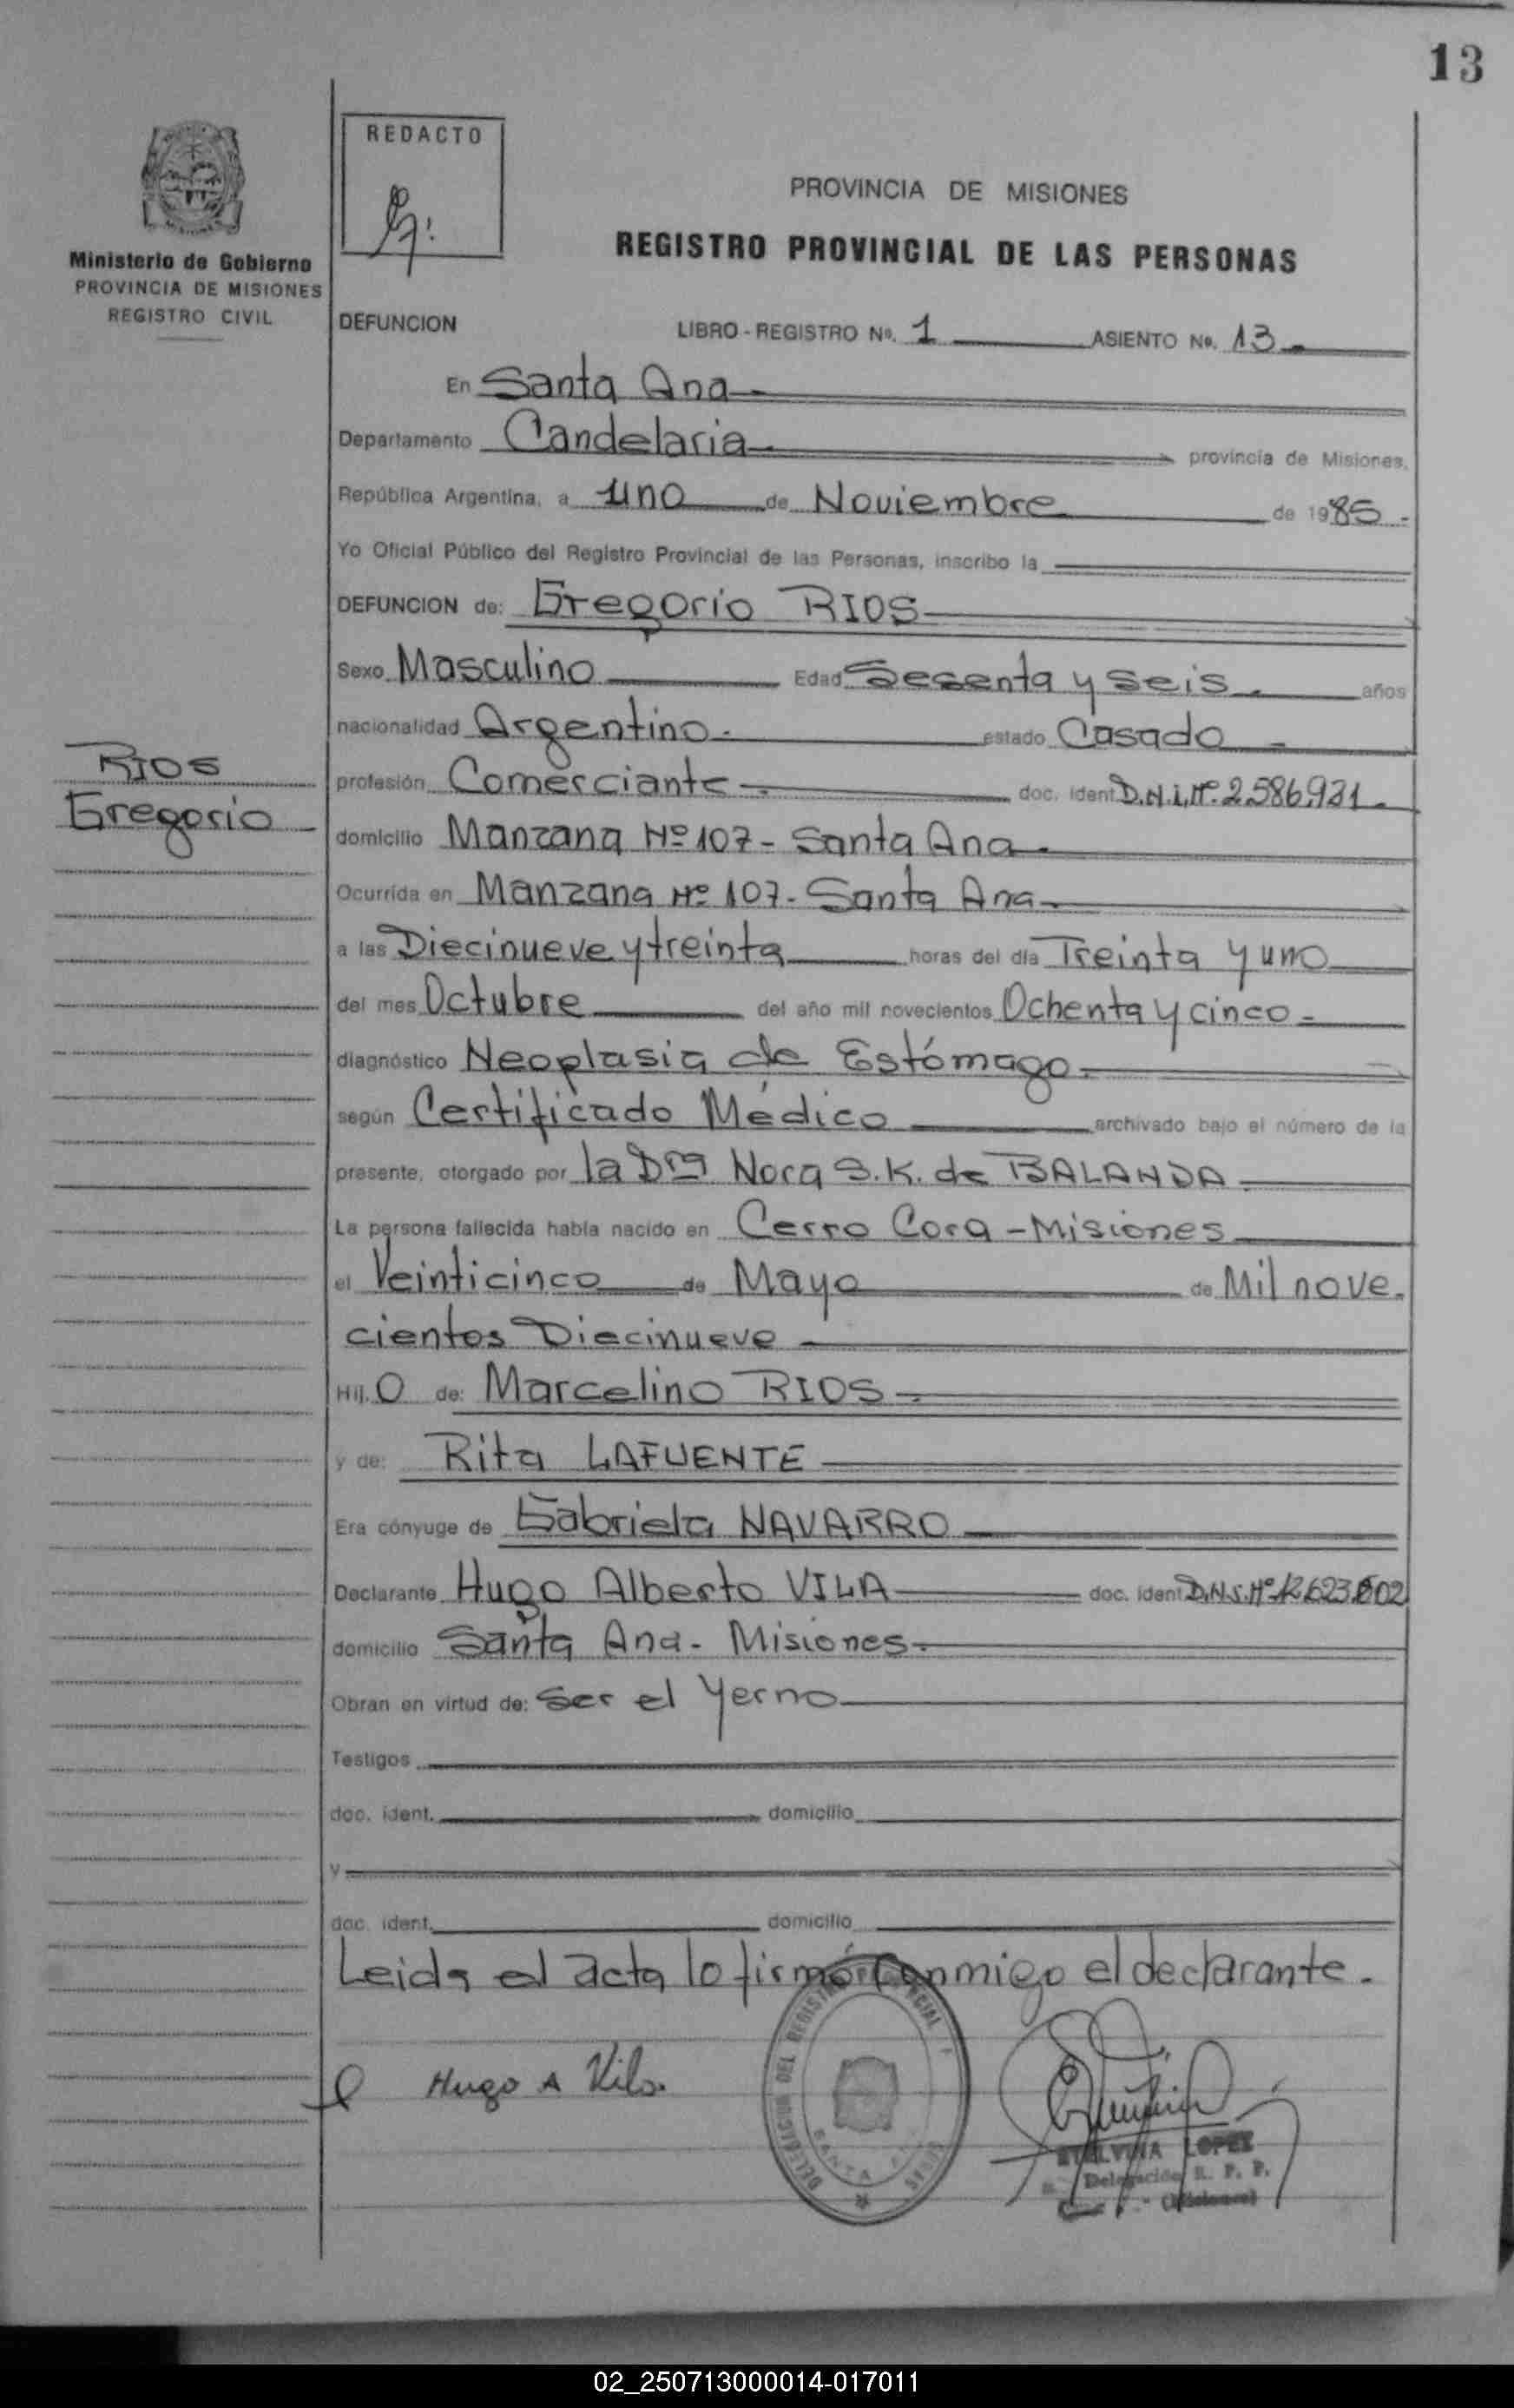 13
REDACTO
PROVINCIA DE MISIONES
REGISTRO PROVINCIAL DE LAS PERSONAS
Ministerio de Gobierno
PROVINCIA DE MISIONES
REGISTRO CIVIL
DEFUNCION LIBRO - REGISTRO Nº. 1 ASIENTO Nº. 13
En Santa Ana
Departamento Candelaria provincia de Misiones,
República Argentina, a uno de Noviembre de 1985
Yo Oficial Público del Registro Provincial de las Personas, inscribo la
DEFUNCION de: Gregorio RIOS
Sexo Masculino Edad Sesenta y Seis años
nacionalidad Argentino estado Casado
RIOS
Gregorio
profesión Comerciante doc. ident D.N.I.Nº. 2.586.931
domicilio Manzana Nº 107 - Santa Ana
Ocurrida en Manzana Nº 107 - Santa Ana
a las Diecinueve y treinta horas del día Treinta y uno
del mes Octubre del año mil novecientos Ochenta y cinco
diagnóstico Neoplasia de Estómago
según Certificado Médico archivado bajo el número de la
presente, otorgado por la Dra Nora S.K. de BALANDA
La persona fallecida había nacido en Cerro Cora - Misiones
el Veinticinco de Mayo de Mil nove.
cientos Diecinueve
Hij. O de: Marcelino RIOS
y de: Rita LAFUENTE
Era cónyuge de Gabriela NAVARRO
Declarante Hugo Alberto VILA doc. ident D.N.I.Nº 12.623.
domicilio Santa Ana - Misiones
Obran en virtud de: Ser el Yerno
Testigos
doc. ident. domicilio
y
doc. ident. domicilio
Leida el acta lo firmó conmigo el declarante.
Hugo A Vila.
DELEGACION DEL REGISTRO
SANTA
LOPEZ
Delegación R. P. P.
(Misiones)
02_250713000014-017011